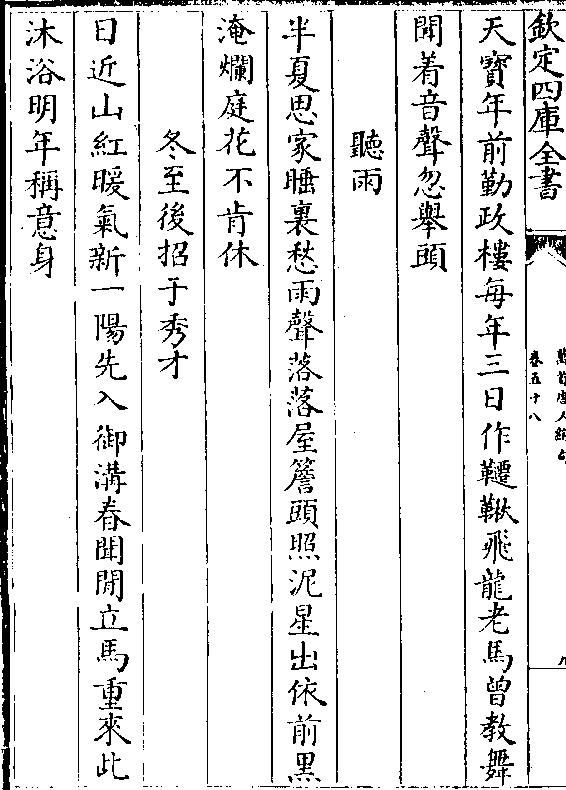 欽定四庫全書
卷五十八
天寳年前勤政樓每年三日作鞦韆飛龍老馬曽教舞
聞着音聲忽舉頭
聽雨
半夏思家睡裏愁雨聲落落屋簷頭照泥星出依前黒
淹爛庭花不肯休
冬至後招于秀才
日近山紅暖氣新一陽先入御溝春聞閒立馬重來此
沐浴明年稱意身